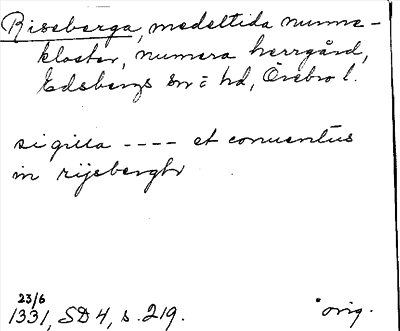 Riseberga, medeltida nunne-
kloster, numera herrgård,
Edsbergs sn o hd, Örebro l.
sigilla ---- et conuentus
in rijsbergh
23/6
1331, SD 4, s. 219. orig.